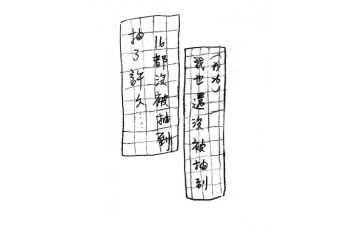 抽了許久…
16都沒被抽到
我也還沒被抽到